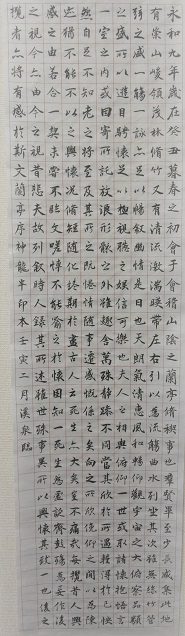 永和九年歲在癸丑暮春之初會于會稽山陰之蘭亭脩稧事也羣賢畢至少長咸集此地
有崇山峻領茂林脩竹又有清流激湍暎帶左右引以為流觴曲水列坐其次雖無絲竹管
弦之盛一觴一詠亦足以暢敘幽情是日也天朗氣清惠風和暢仰觀宇宙之大俯察品類
之盛所以遊目騁懷足以極視聽之娛信可樂也夫人之相與俯仰一世或取諸懷抱悟言
一室之內或因寄所託放浪形骸之外雖趣舍萬殊靜躁不同當其欣於所遇暫得於己快
然自足不知老之將至及其所之既惓情隨事遷感慨係之矣向之所欣俛仰之間以為陳
迹猶不能不以之興懷況脩短隨化終期於盡古人云死生亦大矣豈不痛哉每攬昔人興
感之由若合一契未嘗不臨文嗟悼不能喻之於懷固知一死生為虛誕齊彭殤為妄作後
之視今亦由今之視昔悲夫故列敘時人錄其所述雖世殊事異所以興懷其致一也後之
攬者亦將有感於斯文蘭亭序神龍半印本壬寅二月溪泉臨